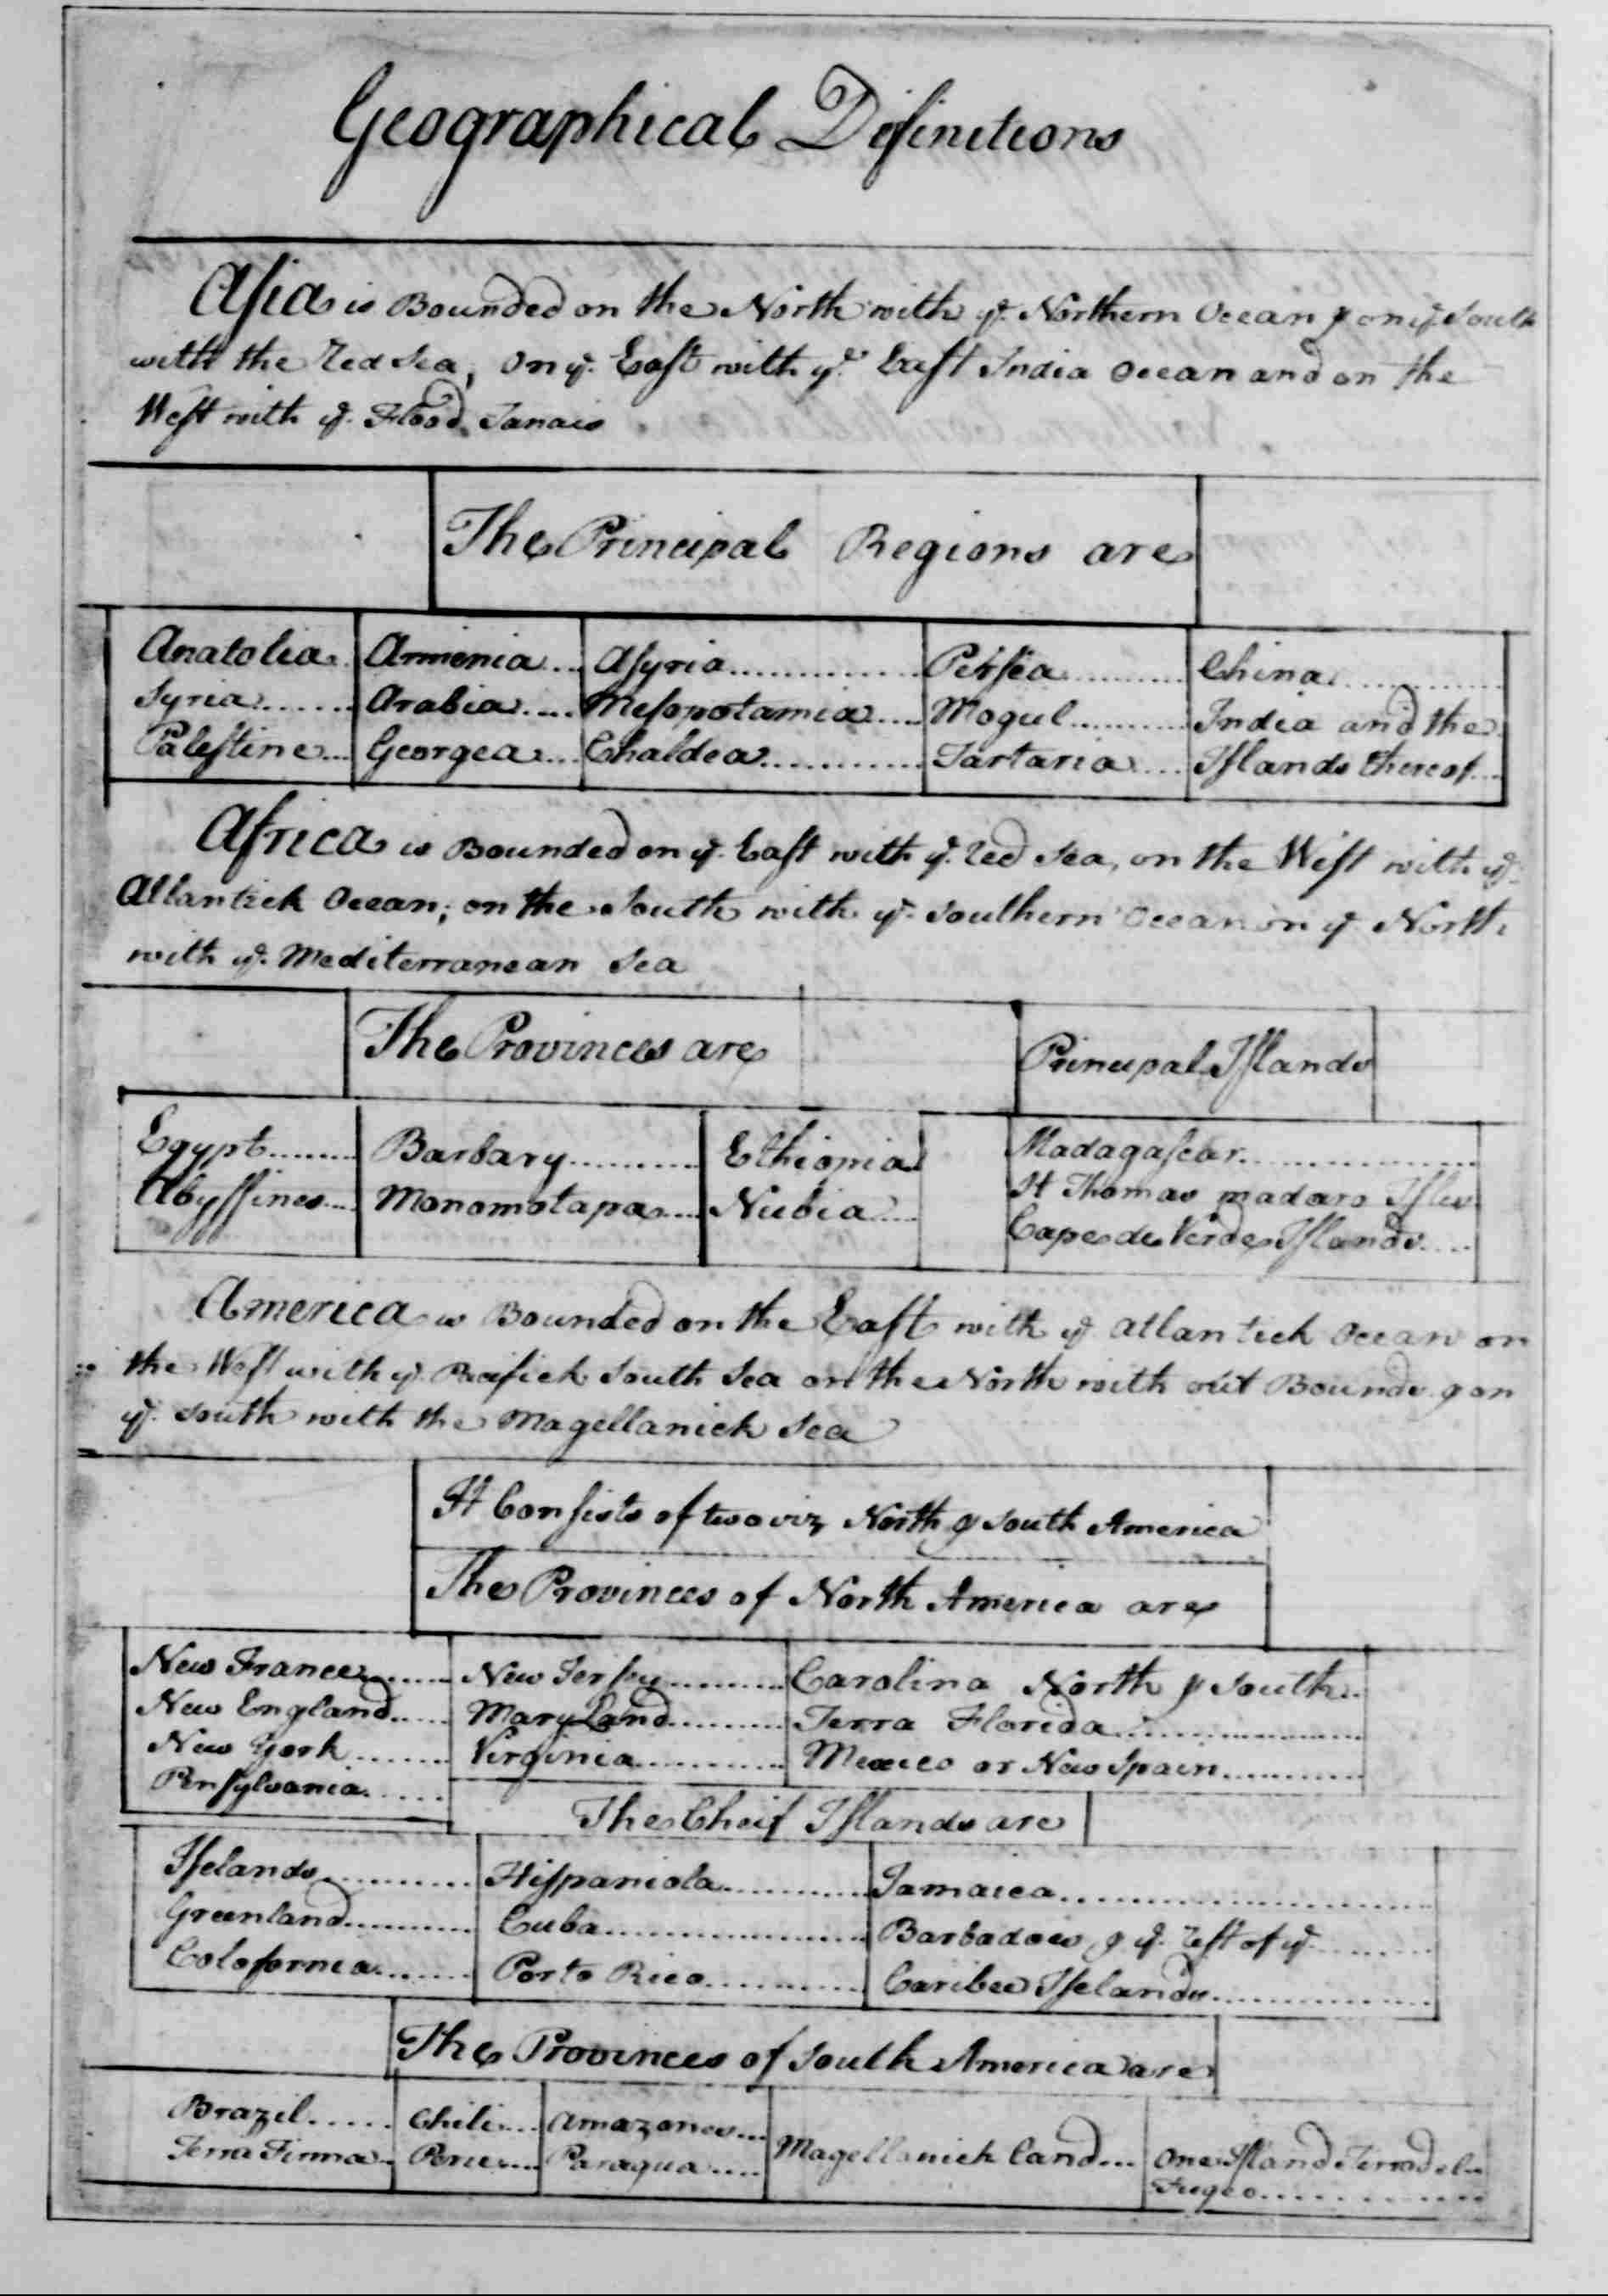 Geographical Difinitions
Asia is Bounded on the North with ye. Northern Ocean & on ye. South
with the Red Sea; On ye. East with ye. East India Ocean and on the
West with ye. Flood Tanais
The Principal Regions are
Anatolia. Armenia... Asyria............. Persea......... China.............
Syria....... Arabia.... Mesopotamia.... Mogul......... India and the
Palestine... Georgea... Chaldea............ Tartaria.... Islands thereof...
Africa is Bounded on ye. East with ye. Red Sea, on the West with ye.
Atlantick Ocean; on the South with ye. Southern Ocean on ye. North
with ye. Mediterranean Sea
The Provinces are Principal Islands
Egypt........ Barbary........... Ethiopia Madagascar..................
Abyssines... Monomotapa.... Nubia.... St Thomas madara Isles
Cape de Verde Islands....
America is Bounded on the East with ye. Atlantick Ocean on
the West with ye. Pacifick South Sea on the North with out Bounds & on
ye. South with the Magellanick Sea
It Consists of two viz North & South America
The Provinces of North America are
New France....... New Jersey......... Carolina North & South..
New England..... Mary Land......... Terra Florida...................
New York....... Virginia............ Mexico or New Spain..........
Pensylvania......
The Cheif Islands are
Iselands........... Hispaniola............ Jamaica............................
Greenland.......... Cuba.................. Barbadoes & ye. Rest of ye.........
Colofornia....... Porto Rico........... Caribee Iselands.................
The Provinces of South America are
Brazil...... Chili.... Amazones... Magellanick Land... One Island Terra del..
Terra Firma.. Peru.... Paragua.... Fuego.............